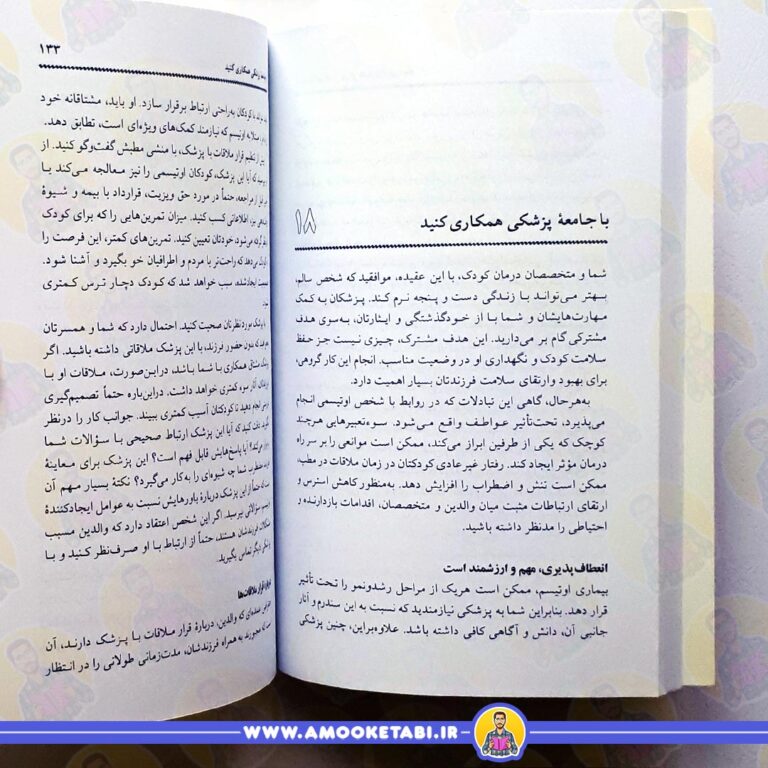 ۱۸
با جامعهٔ پزشکی همکاری کنید
شما و متخصصان درمان کودک، با این عقیده، موافقید که شخص سالم،
بهتر می‌تواند با زندگی دست و پنجه نرم کند. پزشکان به کمک
مهارت‌هایشان و شما با از خودگذشتگی و ایثارتان، به‌سوی هدف
مشترکی گام بر می‌دارید. این هدف مشترک، چیزی نیست جز حفظ
سلامت کودک و نگهداری او در وضعیت مناسب. انجام این کار گروهی،
برای بهبود و ارتقای سلامت فرزندتان بسیار اهمیت دارد.
به‌هرحال، گاهی این تبادلات که در روابط با شخص اوتیسمی انجام
می‌پذیرد، تحت‌تأثیر عواطف واقع می‌شود. سوءتعبیرهایی هرچند
کوچک که یکی از طرفین ابراز می‌کند، ممکن است موانعی را بر سر راه
درمان مؤثر ایجاد کند. رفتار غیرعادی کودکتان در زمان ملاقات در مطب،
ممکن است تنش و اضطراب را افزایش دهد. به‌منظور کاهش استرس و
ارتقای ارتباطات مثبت میان والدین و متخصصان، اقدامات بازدارنده و
احتیاطی را مدنظر داشته باشید.
انعطاف‌پذیری، مهم و ارزشمند است
بیماری اوتیسم، ممکن است هریک از مراحل رشدونمو را تحت تأثیر
قرار دهد. بنابراین شما به پزشکی نیازمندید که نسبت به این سندرم و آثار
جانبی آن، دانش و آگاهی کافی داشته باشد. علاوه‌براین، چنین پزشکی
۱۳۳
پزشکی همکاری کنید
کودکان به‌راحتی ارتباط برقرار سازد. او باید، مشتاقانه خود
اوتیسم که نیازمند کمک‌های ویژه‌ای است، تطابق دهد.
تنظیم قرار ملاقات با پزشک، با منشی مطبش گفت‌وگو کنید. از
که آیا این پزشک، کودکان اوتیسمی را نیز معالجه می‌کند یا
مراجعه، حتماً در مورد حق ویزیت، قرارداد با بیمه و شیوهٔ
اطلاعاتی کسب کنید. میزان تمرین‌هایی را که برای کودک
گرفته می‌شود، خودتان تعیین کنید. تمرین‌های کمتر، این فرصت را
می‌دهد که راحت‌تر با مردم و اطرافیان خو بگیرد و آشنا شود.
ایجادشده، سبب خواهد شد که کودک دچار ترس کمتری
شود.
با پزشک مورد نظرتان صحبت کنید. احتمال دارد که شما و همسرتان
بدون حضور فرزند، با این پزشک ملاقاتی داشته باشید. اگر
پزشک مشتاق همکاری با شما باشد، دراین‌صورت، ملاقات او با
آثار سوء کمتری خواهد داشت. دراین‌باره حتماً تصمیم‌گیری
انجام دهید تا کودکتان آسیب کمتری ببیند. جوانب کار را درنظر
دقت کنید که آیا این پزشک ارتباط صحیحی با سؤالات شما
آیا پاسخ‌هایش قابل فهم است؟ این پزشک برای معاینهٔ
مضطرب شما چه شیوه‌ای را به‌کار می‌گیرد؟ نکتهٔ بسیار مهم آن
است که حتماً از این پزشک دربارهٔ باورهایش نسبت به عوامل ایجادکنندهٔ
سؤالاتی بپرسید. اگر این شخص اعتقاد دارد که والدین مسبب
مشکلات فرزندشان هستند، حتماً از ارتباط با او صرف‌نظر کنید و با
پزشکی دیگر تماس بگیرید.
قرار ملاقات‌ها
عمده‌ای که والدین، دربارهٔ قرار ملاقات با پزشک دارند، آن
است که مجبورند به همراه فرزندشان، مدت‌زمانی طولانی را در انتظار
WWW.AMOOKETABI.IR